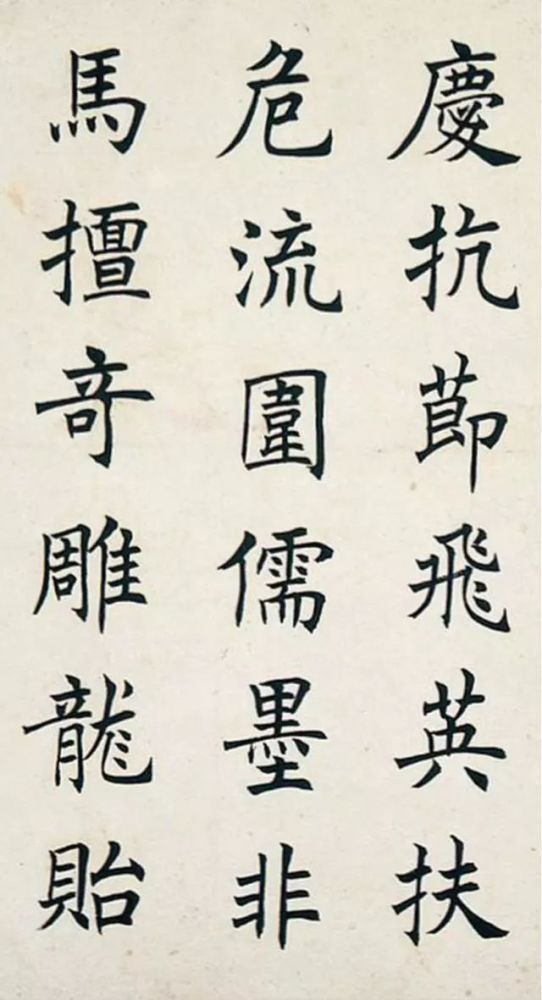 慶抗節飛英扶
危流圍儒墨非
馬擅奇雕龍貽